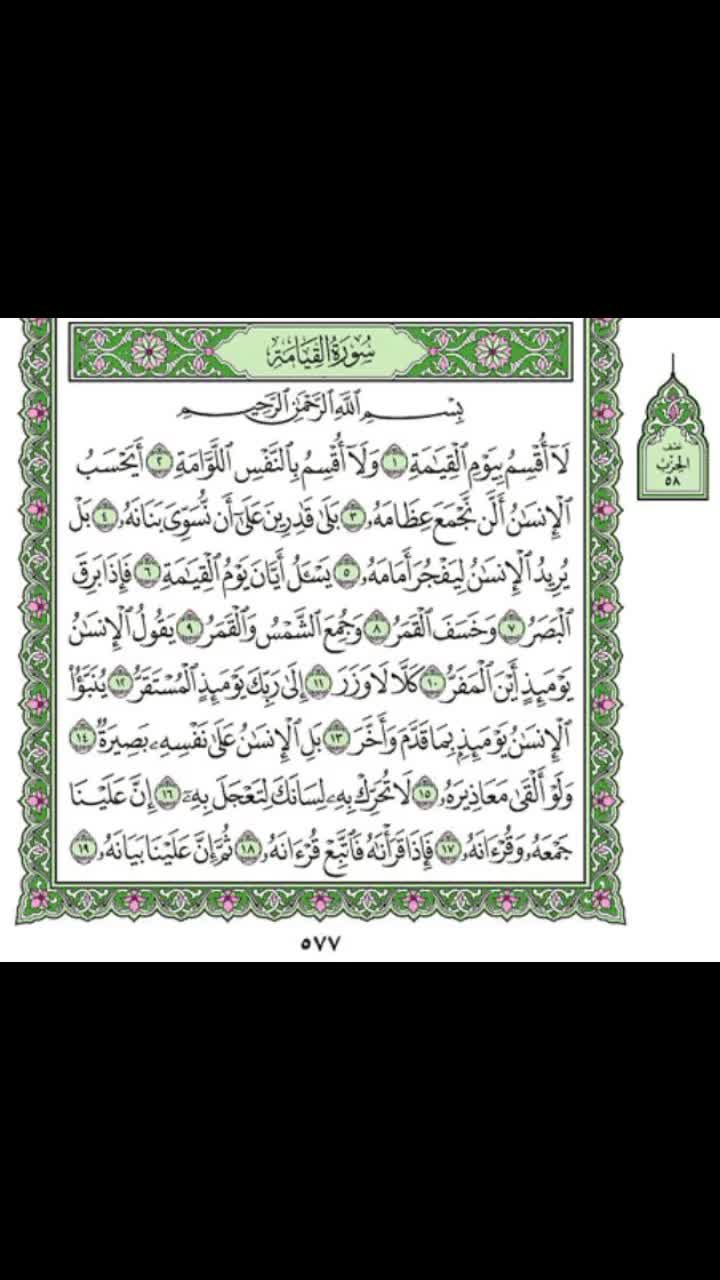 سُورَةُ القِيَامَةِ
بِسْمِ ٱللَّهِ ٱلرَّحْمَٰنِ ٱلرَّحِيمِ
لَآ أُقْسِمُ بِيَوْمِ ٱلْقِيَٰمَةِ ١ وَلَآ أُقْسِمُ بِٱلنَّفْسِ ٱللَّوَّامَةِ ٢ أَيَحْسَبُ
ٱلْإِنسَٰنُ أَلَّن نَّجْمَعَ عِظَامَهُۥ ٣ بَلَىٰ قَٰدِرِينَ عَلَىٰٓ أَن نُّسَوِّىَ بَنَانَهُۥ ٤ بَلْ
يُرِيدُ ٱلْإِنسَٰنُ لِيَفْجُرَ أَمَامَهُۥ ٥ يَسْـَٔلُ أَيَّانَ يَوْمُ ٱلْقِيَٰمَةِ ٦ فَإِذَا بَرِقَ
ٱلْبَصَرُ ٧ وَخَسَفَ ٱلْقَمَرُ ٨ وَجُمِعَ ٱلشَّمْسُ وَٱلْقَمَرُ ٩ يَقُولُ ٱلْإِنسَٰنُ
يَوْمَئِذٍ أَيْنَ ٱلْمَفَرُّ ١٠ كَلَّا لَا وَزَرَ ١١ إِلَىٰ رَبِّكَ يَوْمَئِذٍ ٱلْمُسْتَقَرُّ ١٢ يُنَبَّؤُا۟
ٱلْإِنسَٰنُ يَوْمَئِذٍۭ بِمَا قَدَّمَ وَأَخَّرَ ١٣ بَلِ ٱلْإِنسَٰنُ عَلَىٰ نَفْسِهِۦ بَصِيرَةٌ ١٤
وَلَوْ أَلْقَىٰ مَعَاذِيرَهُۥ ١٥ لَا تُحَرِّكْ بِهِۦ لِسَانَكَ لِتَعْجَلَ بِهِۦٓ ١٦ إِنَّ عَلَيْنَا
جَمْعَهُۥ وَقُرْءَانَهُۥ ١٧ فَإِذَا قَرَأْنَٰهُ فَٱتَّبِعْ قُرْءَانَهُۥ ١٨ ثُمَّ إِنَّ عَلَيْنَا بَيَانَهُۥ ١٩
٥٧٧
نصف
الحزب
٥٨